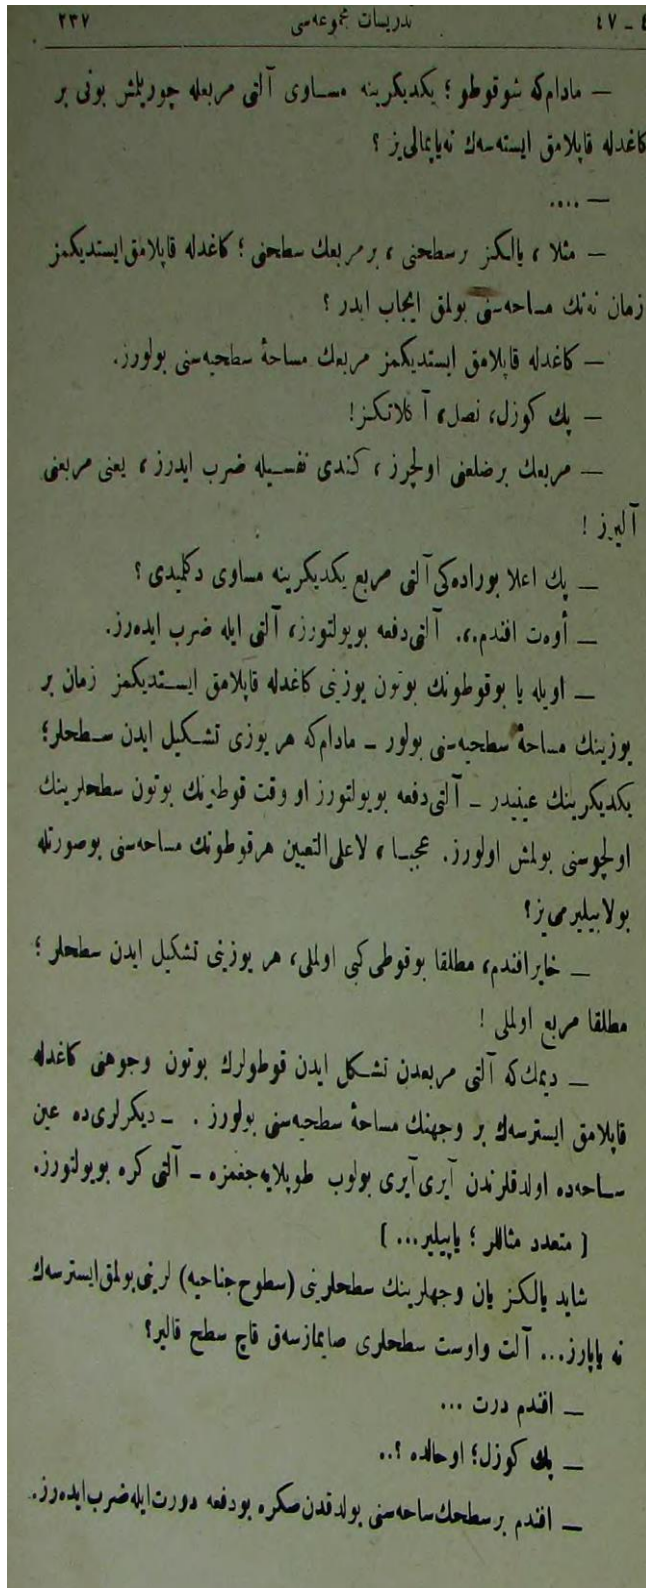 ٤ - ٤٧ تدریسات مجموعه‌سی ٢٣٧
— مادام‌كه شو قوطو ؛ یكدیكرینه مساوی آلتی مربعله چوریلمش بونی بر
كاغدله قاپلامق ایسته‌سه‌ك نه‌یاپمالی‌یز ؟
— ....
— مثلا ، یالكز برسطحنی ، برمربعك سطحنی ؛ كاغدله قاپلامق ایستدیكمز
زمان نه‌نك مساحه‌سنی بولمق ایجاب ایدر ؟
— كاغدله قاپلامق ایستدیكمز مربعك مساحهٔ سطحیه‌سنی بولورز.
— پك كوزل، نصل، آ كلاتكز!
— مربعك برضلعنی اولچرز ، كندی نفسیله ضرب ایدرز ، یعنی مربعنی
آلیرز !
— پك اعلا بوراده‌كی آلتی مربع یكدیكرینه مساوی دكلمیدی ؟
— أوه‌ت افندم.،. آلتی دفعه بویولتورز، آلتی ایله ضرب ایده‌رز.
— اویله یا بوقوطونك بوتون یوزینی كاغدله قاپلامق ایستدیكمز زمان بر
یوزینك مساحهٔ سطحیه‌سنی بولور – مادام‌كه هر یوزی تشكیل ایدن سطحلر؛
یكدیكرینك عینیدر – آلتی دفعه بویولتورز او وقت قوطینك بوتون سطحلرینك
اولچوسنی بولمش اولورز. عجبا ، لاعلی‌التعیین هرقوطونك مساحه‌سنی بوصورتله
بولابیلیرمی‌یز؟
— خایر افندم، مطلقا بوقوطی كبی اولملی، هر یوزینی تشكیل ایدن سطحلر ؛
مطلقا مربع اولملی !
— دیمك‌كه آلتی مربعدن تشكل ایدن قوطولرك بوتون وجوهنی كاغدله
قاپلامق ایسترسه‌ك بر وجهنك مساحهٔ سطحیه‌سنی بولورز . – دیكرلری‌ده عین
مساحه‌ده اولدقلرندن آیری آیری بولوب طوپلایه‌جغمزه – آلتی كره بویولتورز.
[ متعدد مثاللر ؛ یاپیلیر... ]
شاید یالكز یان وجهلرینك سطحلرینی (سطوح جناحیه) لرینی بولمق ایسترسه‌ك
نه یاپارز... آلت واوست سطحلری صایمازسه‌ق قاچ سطح قالیر؟
— افندم درت ...
— پك كوزل؛ اوحالده ؟..
— افندم برسطحك ساحه‌سنی بولدقدن صكره بودفعه دورت ایله ضرب ایده‌رز.